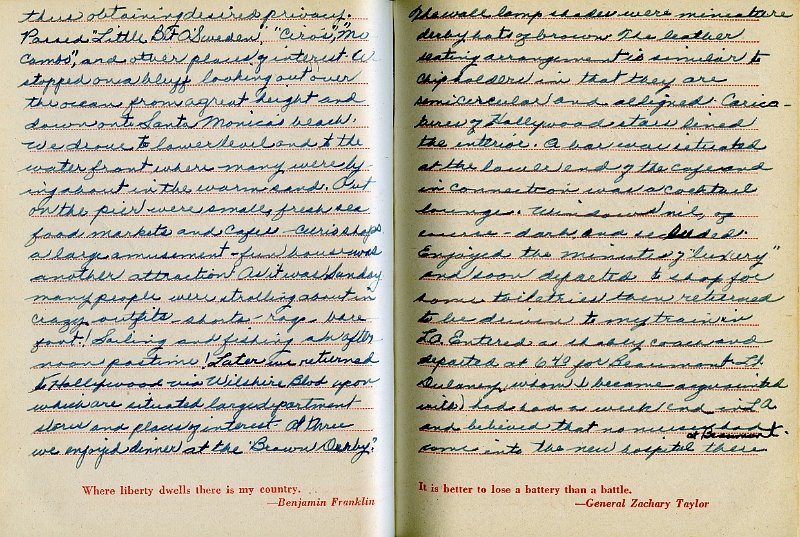 thus obtaining desired privacy.
Passed "Little BF O'Sweden", "Ciro's", "Mo
Cambo", and other places of interest. We
stopped on a bluff looking out over
the ocean from a great height and
down onto Santa Monica's beach.
We drove to lower level and to the
water front where many were ly-
ing about in the warm sand. Out
on the pier were small, fresh sea
food markets and cafes - curio shops
a large amusement - fun house was
another attraction. As it was Sunday
many people were strolling about in
crazy outfits - shorts - rags - bare
foot! Sailing and fishing after
noon pastime! Later we returned
to Hollywood via Wilshire Blvd upon
which are situated large department
stores and places of interest. At three
we enjoyed dinner at the "Brown Derby".
Where liberty dwells there is my country.
—Benjamin Franklin
The wall lamp shades were miniature
derby hats of brown. The leather
seating arrangement is similar to
chip holders in that they are
semi circular and alligned. Carica-
tures of Hollywood stars lined
the interior. A bar was situated
at the lower end of the cafe and
in connection was a cocktail
lounge. Windows nil, of
course - dark and secluded.
Enjoyed the minutes of "luxury"
and soon departed to shop for
some toiletries then returned
to be driven to my train in
LA. Entered a shabby coach and
departed at 640 for Beaumont - Lt
Dulaney, whom I became acquainted
with) had had a week end in LA
and believed that no nurses had
at Beaumont.
come into the new hospital there
It is better to lose a battery than a battle.
—General Zachary Taylor